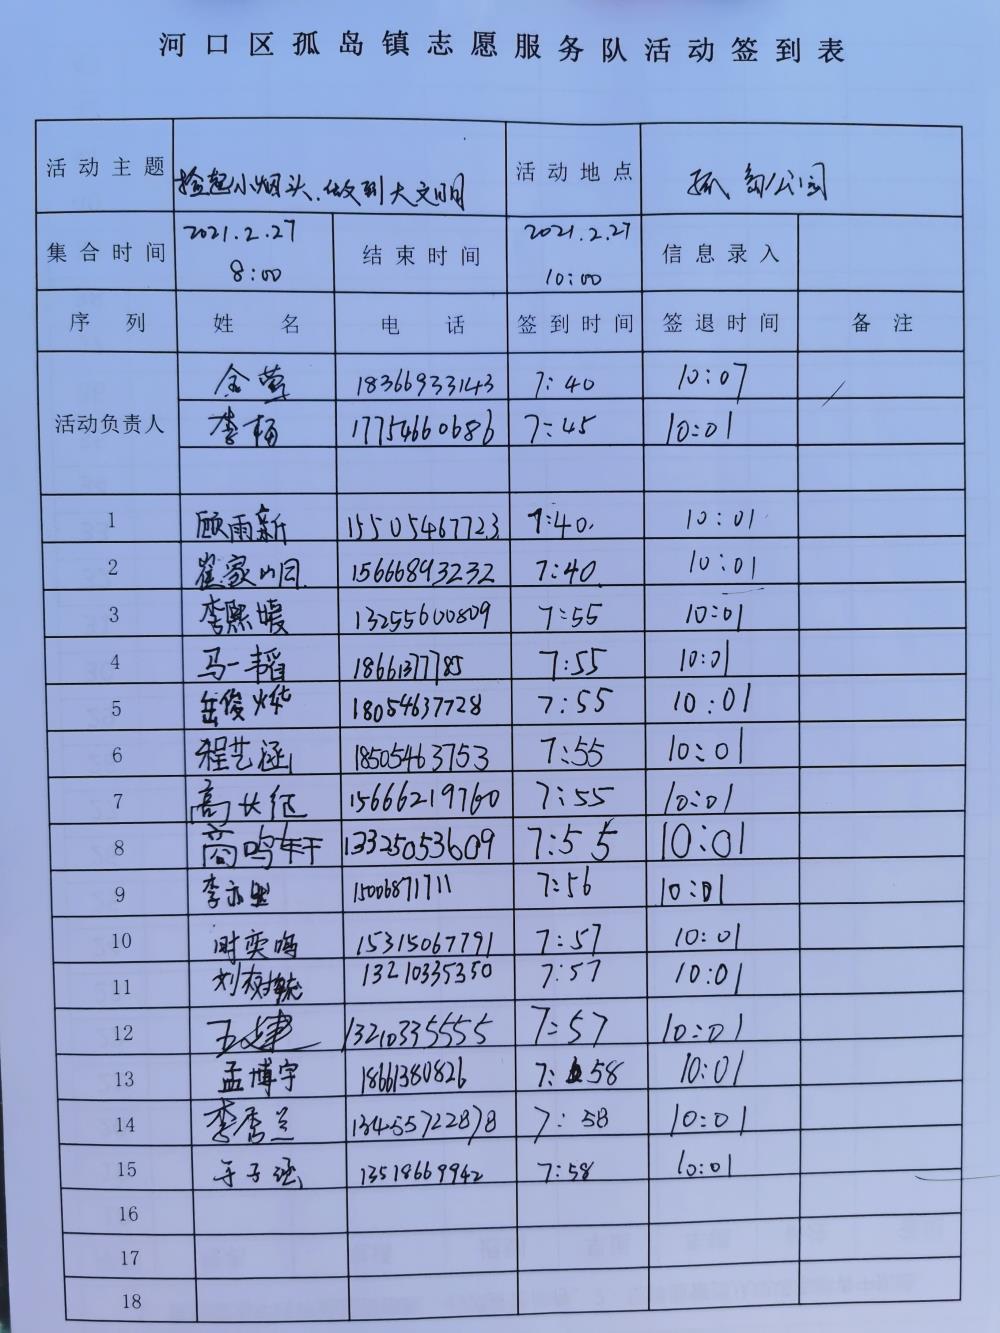 河口区孤岛镇志愿服务队活动签到表
活动主题 捡起小烟头、做到大文明 活动地点 孤岛公园
集合时间 2021.2.27 8:00 结束时间 2021.2.27 10:00 信息录入
序列 姓名 电话 签到时间 签退时间 备注
活动负责人
金莺 18366933143 7:40 10:07
李杨 17754660686 7:45 10:01
1 顾雨新 15505467723 7:40. 10:01
2 崔家明 15666893232 7:40 10:01
3 李熙媛 13255600809 7:55 10:01
4 马一韬 18661377785 7:55 10:01
5 岳俊烨 18054637728 7:55 10:01
6 程艺涵 18505463753 7:55 10:01
7 高长征 15666219760 7:55 10:01
8 商鸣轩 13325053609 7:55 10:01
9 李亦 15006871711 7:56 10:01
10 时奕鸣 15315067791 7:57 10:01
11 刘树毓 13210335350 7:57 10:01
12 13210335555 7:57 10:01
13 孟博宇 18661380826 7:58 10:01
14 李秀兰 13455722878 7:58 10:01
15 于子涵 13518669942 7:58 10:01
16
17
18